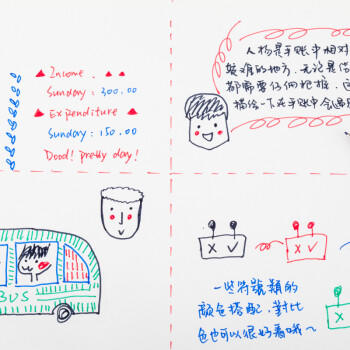 Income
Sunday: 300.00
Expenditure
Sunday: 150.00
Dood! pretty day!
人物是手账中相对
较难的地方,无论是
都需要仔细把握,
描绘一下在手账中会遇
BUS
一些符號類的
颜色搭配,對比
色也可以很好看哦~